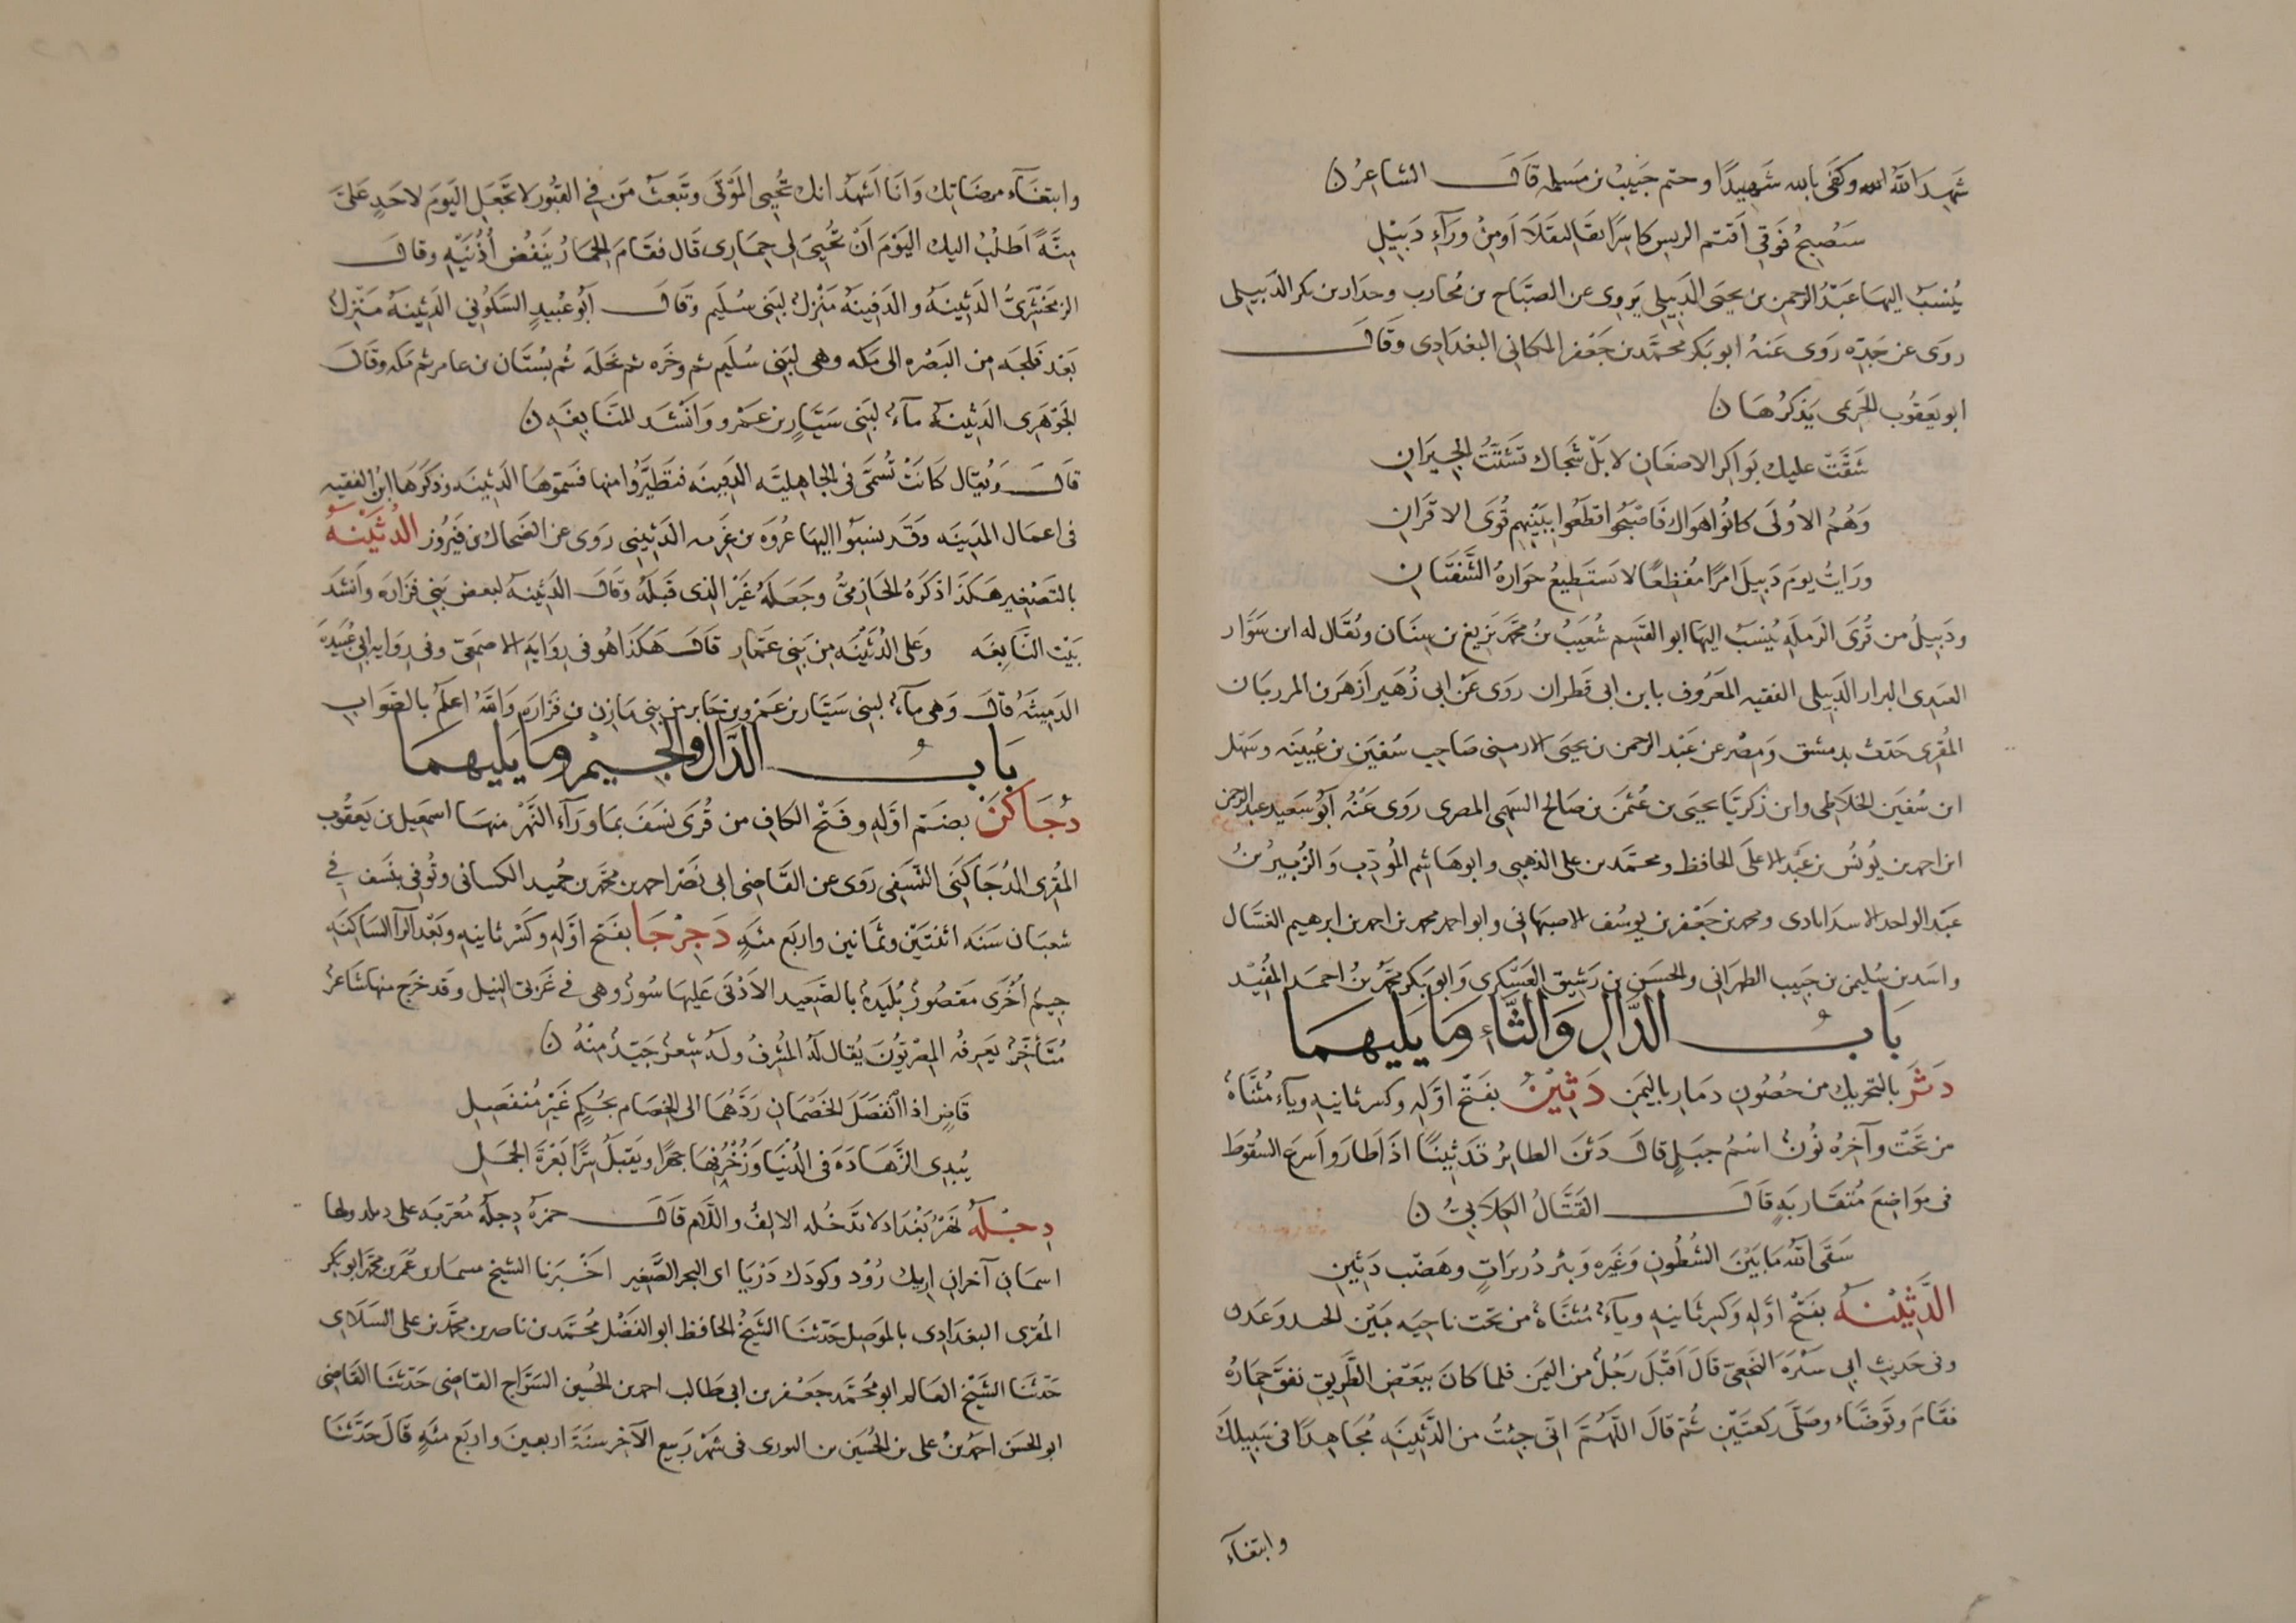 شَهِدَ اللَّهُ الله وكفَى بالله شَهِيدًا وختم حَبِيبُ بن مَسلمه قَالَ الشاعِرُ ن
سَنُصِبحُ فَوقِى اَقتم الريسِ كاسِرًا بقَالِيقَلَا اَومِنْ ورَآءِ دَبِيْلِ
يُنسَبُ اليهَا عَبْدُ الرحمن بن يحيَى الدَبِيلِى يَروِى عن الصبَّاح بن مُحَارب وجدَار بن بكر الدَبِيلى
روَى عن جَدِّه رَوَى عَنْهُ ابو بَكر محمَّد بن جَعْفر الكانى البغدَادِى وَقَالَ
ابو يَعقُوب الخرَيمى يَذكرُهَا ن
شَقَّتْ عليك بَواكِرُ الاضغَانِ لا بَلْ شَجَاك تَشَتُّتُ الجِيرَانِ
وَهُمُ الاوُلَى كانُوا هَواك فَاصْبَحُوا قطَعُوا بِبَيْنِهِم قُوَى الاقرَانِ
ورَايتُ يومَ دَبِيلَ امرًا مُفظِعًا لا يَستَطِيعُ حوَارهُ الشَّفَتَانِ
ودَبِيلُ من قُرَى الرَملَهِ يُنسَبُ اليهَا ابو القَسِم شُعَيبُ بنُ محمَّد بن بَزِيغ بن سِنَان ويُقَال له ابن سَوَّار
العَبدِى البزار الدَبِيلِى الفقيه المَعْرُوف بابن ابى قطران روَى عَنْ ابى زُهَير اَزهَر بن المرزبان
المُقرِى حَدّث بدِمشق وَمِصْر عن عَبْد الرحمن بن يحيَى الارمنِى صَاحِب سُفيَن بن عُيَينَه وسَهل
ابن سُفيَن الخلَاطِى وابن زكرِيَّا يحيَى بن عُثمَن بن صَالح السَهمِى المصرِى روَى عَنْهُ اَبُو سَعيد عبد الرحمن
ابن احمد بن يُونُس بن عَبْد الاعلَى الحافظ ومحمَّد بن على الذهبى وابو هاشِم المُودّب والزُبيرُ بنُ
عَبْد الواحد الاسدَابادى ومحمد بن جَعْفر بن يوسُف الاصبهَانى وابو احمد محمد بن احمد بن ابرهيم الغسَّال
واسَد بن سُليمن بن حَبيب الطهرَانى والحسَن بن رَشيق العَسْكرِى وَابو بَكر محمَّد بنُ احمَد المُفِيْد
بَابُ الدَّالِ وَالثَّاءِ وَمَا يَليهِمَا
دَثَرُ بالتحرِيك من حصُونِ دمَار باليمَن دَثِيْنُ بفَتْح اوَّلِه وكسر ثانيهِ وياء مُثنَّاهُ
من تَحت وآخِرُه نُونُ اسُمُ جبَلٍ قَالَ دَثَنَ الطايرُ تَدْثِينًا اذَا طَارَ واَسرعَ السُقوطَ
فى مَواضِعَ مُتقَاربَهٍ قَالَ القَتَّالُ الكِلَابِىُّ ن
سَقَى اللَّهُ مَا بَيْنَ الشُطُونِ وَغَمرِه وَبئر دُرَيرَاتٍ وهَضْب دَثِينِ
الدَّثِيْنَهُ بفَتْح اوَّلِه وَكسر ثَانيهِ وياءٌ مُثنَّاهُ من تحت ناحِيَه بَيْن الجند وَعَدَن
وفى حَدِيثِ ابى سَبْرَه النَخَعِىّ قَالَ اَقْبَلَ رَجُلُ من اليمَن فلما كانَ ببَعْضِ الطَّريقِ نفَقَ حِمَارُهُ
فقَامَ وتَوضَّاء وصَلَّى ركعَتَيْنِ ثُمَّ قَالَ اللَّهُمَّ انِّى جِئتُ من الدَّثِينَهِ مُجَاهِدًا فى سَبيِلكَ
وابتغَآءَ
وابتغَآء مرضَاتِك وَانَا اَشهَدُ انك تُحيِى المَوْتَى وتَبعَثُ مَن فِى القبُور لا تجعَل اليَومَ لاحَدٍ عَلَىَّ
مِنَّةً اَطلُبُ اليك اليَوْمَ اَنْ تُحيِىَ لِى حِمَارِى قَال فقَامَ الحِمَارُ يَنفُضُ اُذُنَيْهِ وقالَ
الزمخشَرِىُّ الدَثِينَهُ والدَفِينَهُ مَنْزِلُ لبَنِى سُلَيم وقَالَ اَبُو عُبيدٍ السَكُونِى الدَثِينَهُ مَنزِلُ
بَعْدَ فَلجَه مِن البَصْره الى مَكه وهى لبَنِى سُليَم ثم وجَره ثم نخلَه ثُم بُستَان بن عامر ثم مَكه وقَالَ
الجَوْهَرِى الدَثِينَهُ مآءٌ لِبَنِى سَيَّارِ بن عَمرو وَاَنْشَد للنَّابِغَهِ ن
قَالَ وَيُقَال كَانَتْ تُسمَّى فى الجَاهِليَّه الدَفِينَه فتطَيَّرُوا منها فَسَمّوهَا الدَثِينَه وذكَرَهَا ابنُ الفقيهِ
فى اعمَال المدِينَه وَقَد نسَبُوا اليهَا عُروَه بن غَزِيه الدَثِينِى روَى عن الضحاك بن فَيرُوز الدُثَيْنَهُ
بالتَصْغِير هَكذَا ذكَرَهُ الحَازِمىُّ وجَعَلَهُ غَيْرَ الذى قَبلَهُ وقَالَ الدُثَينهُ لبعض بَنِى فزَارَه واَنشَدَ
بَيْت النَّابِغَه وعَلى الدُثَيْنَهِ مِن بَنِى عَمّارِ قَالَ هَكذَا هُو فى روَايَهِ الاصمَعِىّ وفى روَايه ابى عُبَيدَه
الدَمِيثَهُ قَالَ وَهى مآءٌ لبَنِى سَيَّار بن عَمْرو بن جَابر من بنِى مَازِن بن فزَارَه وَاللَّهُ اعلَمُ بالصَوابِ
بَابُ الدَّالِ وَالجِيْمِ وَمَا يَليهِمَا
دُجَاكَنَ بضَمّ اوَّلِه وفَتْح الكافِ من قُرَى نَسَفَ بمَا ورَآءَ النَّهْر منهَا اسمَعِيل بن يَعقُوب
المُقرِى الدُجَاكَنِى النَّسَفِى روَى عن القَاضِى ابى نَصْر احمد بن محمَّد بن حمِيد الكسانى وتُوفِى بنَسَف فى
شعبَان سَنَه اثنتَيْن وثمَانين واربَع مئهٍ دَجِرْجَا بفَتح اوَّله وكَسْر ثانيهِ وبَعْد الرآ السَاكنَهِ
جِيمُ اُخْرَى مَقصُورُ بُليدَهُ بالصَّعِيد الاَدْنَى عَليهَا سُورُ وهى فى غَربى النِيل وقَد خرَج منهَا شَاعرُ
مُتَأخِّرُ يَعرِفُه المِصْرِيّونَ يُقال لَهُ المُشرِفُ ولَه شِعرُ جَيّدُ مِنْهُ ن
قَاضٍ اذا انْفصَلَ الخَصْمَانِ رَدَّهُمَا الى الخِصَام بحُكمٍ غَيْرِ مُنفَصِلِ
يُبدِى الزَّهَادَهَ فى الدُنْيَا وزُخْرُفِهَا جهرًا ويَقبَلُ سِرًّا بَعْرَةَ الجمَلِ
دِجْلَهُ نَهْرُ بَغْدَاد لا تدَخُله الالِفُ واللَّام قَالَ حمزهُ دِجلَهُ مُعَرّبه على ديلد ولها
اسمَانِ آخرانِ اَرِيك رُوْد وكودك دَرْيَا اى البحر الصَّغِير اخْبَرنا الشيخ مسمار بن عُمَر بن محمَّد ابو بَكر
المُقرِى البغدَادى بالموَصِل حَدَّثنَا الشَيْخُ الحافظ ابو الفَضْل مُحمَّد بن ناصر بن محمَّد بن على السَلَامى
حَدّثنَا الشَيْخ العَالم ابو مُحَمَّد جَعْفر بن ابى طَالب احمد بن الحُسين السَرَّاج القَاضِى حَدّثنَا القَاضِى
ابو الحسَن احمَد بنُ على بن الحُسَين بن التوزى فى شَهْر رَبيع الآخر سَنَةَ اربعينَ واربَع مئَهٍ قَالَ حَدَّثنَا